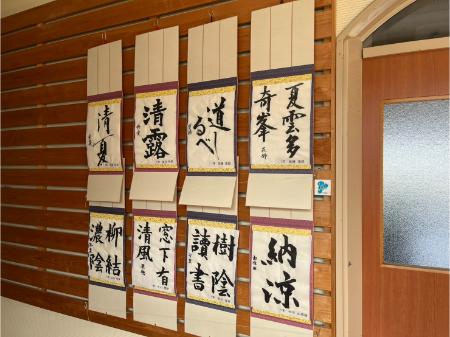 夏雲多
奇峯
道しるべ
清露
清夏
納涼
樹陰
讀書
窓下有
清風
柳結
濃陰